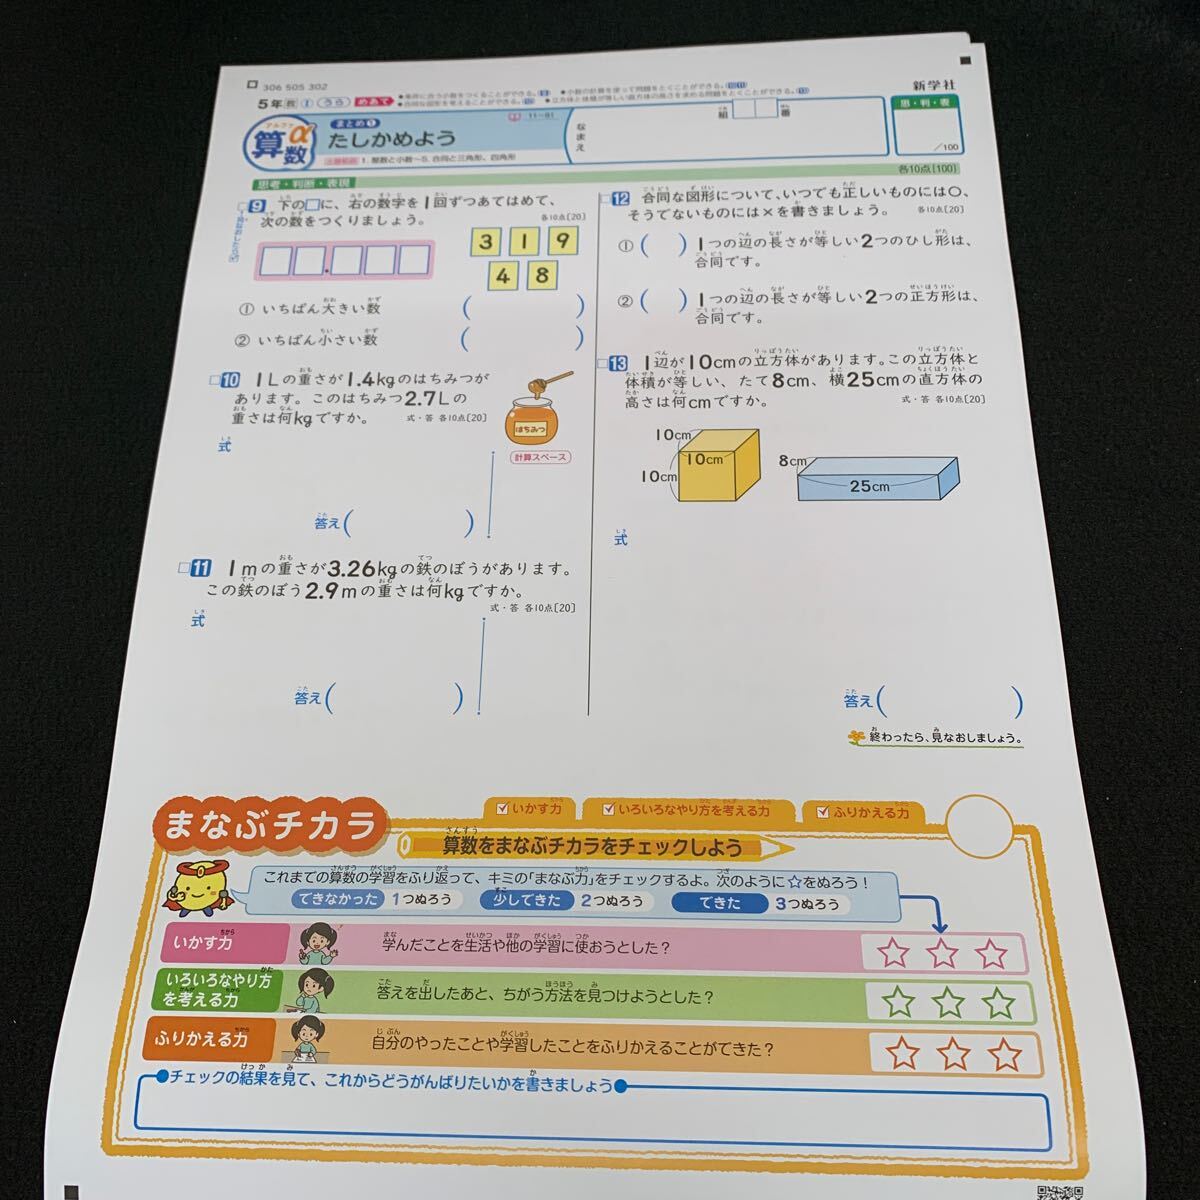 306 505 302
新学社
5年 教 1 うら めあて
●条件に合う小数をつくることができる。 ●小数の計算を使って問題をとくことができる。
●合同な図形を考えることができる。 ●立方体と体積が等しい直方体の高さを求める問題をとくことができる。
アルファ
算数α
まとめ1
たしかめよう
11~81
出題範囲 1. 整数と小数~5. 合同と三角形、四角形
なまえ
組 番
思・判・表
/100
各10点[100]
思考・判断・表現
9 下の□に、右の数字を1回ずつあてはめて、
次の数をつくりましょう。 各10点[20]
3 1 9
4 8
① いちばん大きい数 ( )
② いちばん小さい数 ( )
10 1Lの重さが1.4kgのはちみつが
あります。このはちみつ2.7Lの
重さは何kgですか。 式・答 各10点[20]
はちみつ
式
計算スペース
答え( )
11 1mの重さが3.26kgの鉄のぼうがあります。
この鉄のぼう2.9mの重さは何kgですか。
式・答 各10点[20]
式
答え( )
12 合同な図形について、いつでも正しいものには○、
そうでないものには×を書きましょう。 各10点[20]
①( ) 1つの辺の長さが等しい2つのひし形は、
合同です。
②( ) 1つの辺の長さが等しい2つの正方形は、
合同です。
13 1辺が10cmの立方体があります。この立方体と
体積が等しい、たて8cm、横25cmの直方体の
高さは何cmですか。 式・答 各10点[20]
10cm
10cm
10cm
8cm
25cm
式
答え( )
終わったら、見なおしましょう。
まなぶチカラ
いかす力
いろいろなやり方を考える力
ふりかえる力
算数をまなぶチカラをチェックしよう
これまでの算数の学習をふり返って、キミの「まなぶ力」をチェックするよ。次のように☆をぬろう!
できなかった 1つぬろう 少しできた 2つぬろう できた 3つぬろう
いかす力 学んだことを生活や他の学習に使おうとした?
いろいろなやり方
を考える力 答えを出したあと、ちがう方法を見つけようとした?
ふりかえる力 自分のやったことや学習したことをふりかえることができた?
チェックの結果を見て、これからどうがんばりたいかを書きましょう